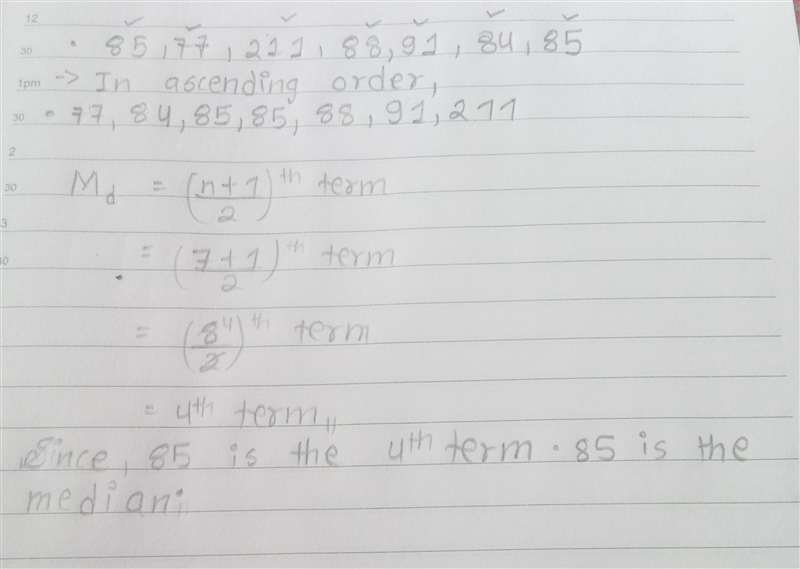 12
30 • 85, 77, 211, 88, 91, 84, 85
1pm -> In ascending order,
30 • 77, 84, 85, 85, 88, 91, 211
2
30 Md = (n+1/2)th term
3
= (7+1/2)th term
= (8/2)th 4 term
= 4th term,,
Since, 85 is the 4th term. 85 is the
median;